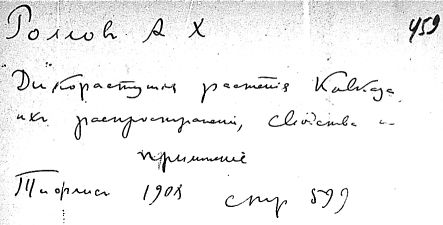 Роллов А Х 459
"Дикорастущия растенія Кавказа,
ихъ распространеніе, свойства и
примененіе
Тифлисъ 1908 стр 599